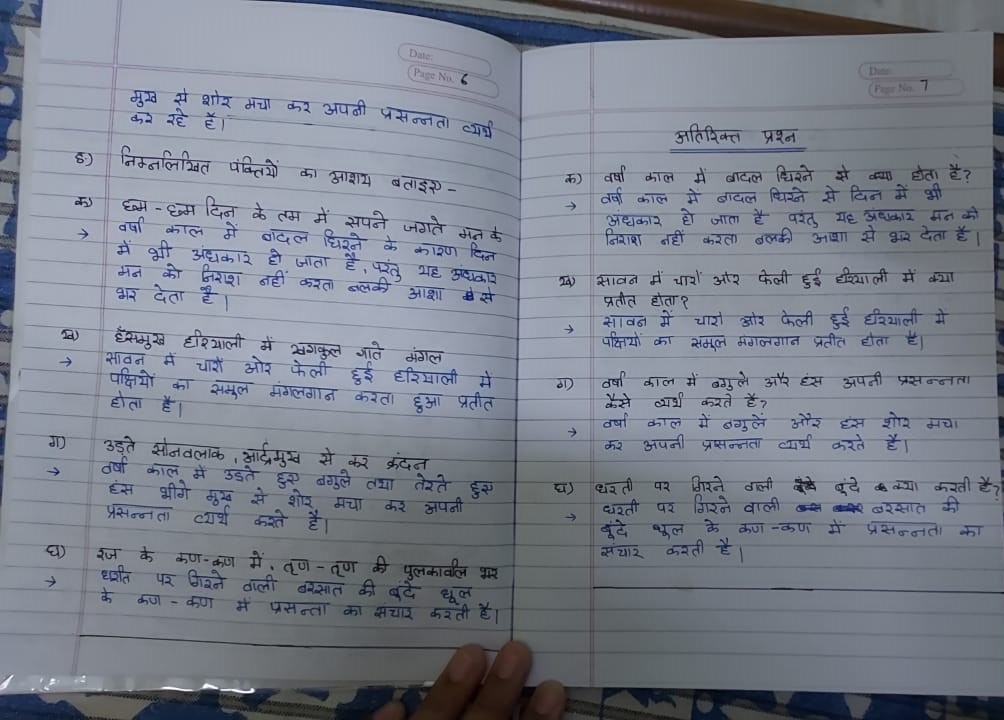 Date:
Page No. 6
मुख से शोर मचा कर अपनी प्रसन्नता व्यर्थ
कर रहे हैं।
ङ) निम्नलिखित पंक्तियों का आशय बताइए -
क) छम - छम दिन के तम में सपने जगते मन के
→ वर्षा काल में बादल घिरने के कारण दिन
में भी अंधकार हो जाता है, परंतु यह अंधकार
मन को निराश नहीं करता बलकी आशा से
भर देता है।
ख) हँसमुख हरियाली में खगकुल गाते मंगल
→ सावन में चारों ओर फेली हुई हरियाली में
पक्षियों का समूल मंगलगान करता हुआ प्रतीत
होता है।
ग) उड़ते सोनवलाक, आर्द्रमुख से कर क्रंदन
→ वर्षा काल में उड़ते हुए बगुले तथा तेरते हुए
हंस भीगे मुख से शोर मचा कर अपनी
प्रसन्नता व्यर्थ करते हैं।
घ) रज के कण-कण में, तृण-तृण की पुलकावलि भर
→ धरती पर गिरने वाली बरसात की बूंदे धूल
के कण - कण में प्रसन्ता का संचार करती हैं।
Date:
Page No. 7
अतिरिक्त प्रश्न
क) वर्षा काल में बादल घिरने से क्या होता है?
→ वर्षा काल में बादल घिरने से दिन में भी
अंधकार हो जाता है परंतु यह अंधकार मन को
निराश नहीं करता बलकी आशा से भर देता है।
ख) सावन में चारों ओर फेली हुई हरियाली में क्या
प्रतीत होता?
→ सावन में चारों ओर फेली हुई हरियाली में
पक्षियों का समूल मंगलगान प्रतीत होता है।
ग) वर्षा काल में बगुले और हंस अपनी प्रसन्नता
कैसे व्यर्थ करते हैं?
→ वर्षा काल में बगुलें और हंस शोर मचा
कर अपनी प्रसन्नता व्यर्थ करते हैं।
घ) धरती पर गिरने वाली बूंदे क्या करती हैं?
→ धरती पर गिरने वाली बरसात की
बूंदे धूल के कण-कण में प्रसन्नता का
संचार करती है।